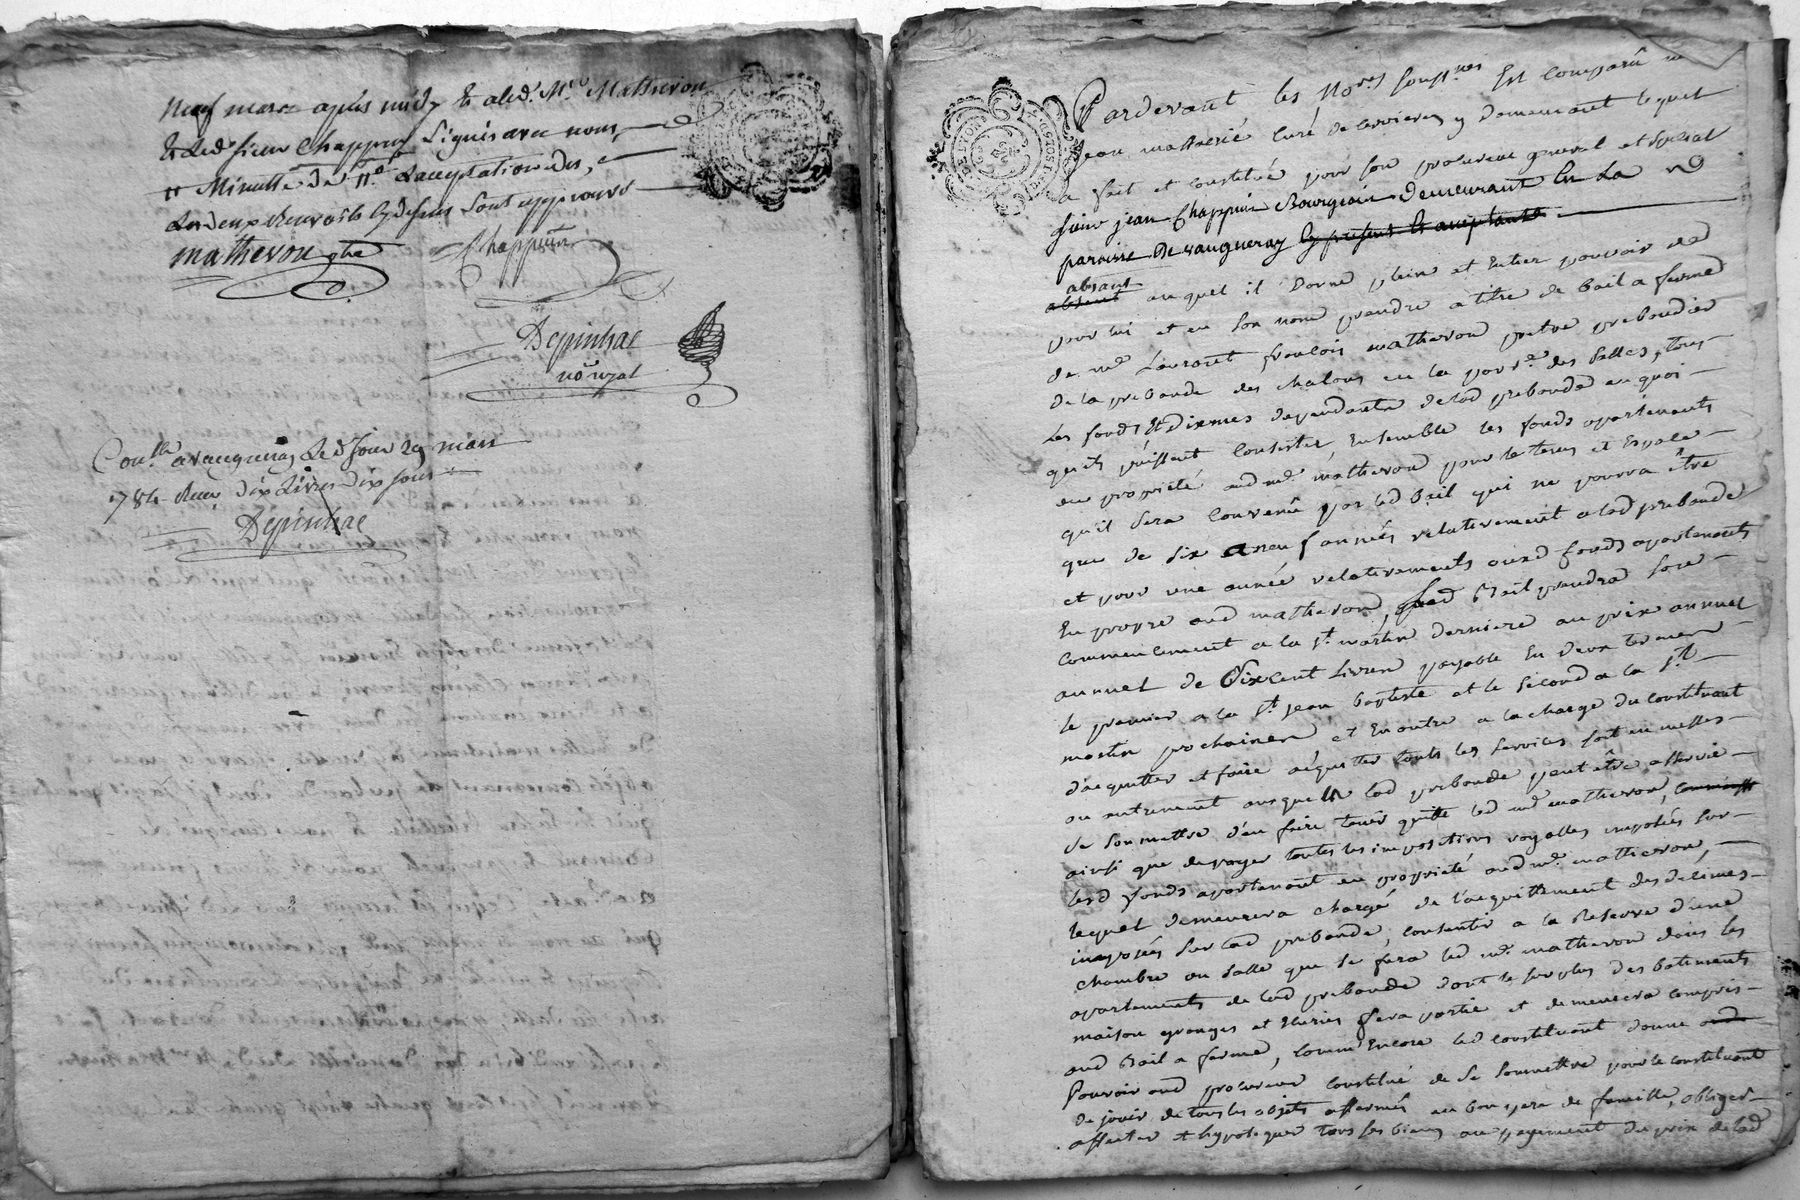 neuf mars après midy & aled. Mre Matheron
& led. sieur Chappuy signés avec nous,
Minutte de
les deux renvois cy dessus sont approuvé
matheron ptre
Chappuin
Depinhac
no. royal
Conlle a vaugneray led jour 29 mars
1784. Reçu dix Livres dix sous
Depinhac
DE LYON
Pardevant les No.res soussnes Est comparû
jean curé de y demeurant lequel
a fait et constitué pour son procureur general et special
sieur jean Chappuin Bourgeois Demeurant En La
paroisse De vaugneray cy present et acceptant
absant
absent auquel il Donne plein et Entier pouvoir de
pour lui et en son nom prendre a titre de bail a ferme
de mre Laurant françois matheron pretre prebandier
de la prebande des chalons en la parr.e des salles, tous
Les fonds Et Dixmes dependants de lad prebande en quoi
qu'ils puissent Consister, Ensemble les fonds apartenants
en propriété aud mre matheron pour le tems et Espace
qu'il sera Convenû par led Bail qui ne pourra être
que de six a neuf années relativement a lad prebande
et pour une année relativements auxd fonds apartenants
En propre aud matheron, quel Bail prendra son
commencement a la st. martin derniere au prix annuel
annuel de Dixcent Livres payable En deux termes
le premier a la st jean baptiste et le second a la st
martin prochaines et En outre a la charge du constituant
d'acquitter et faire acquitter touts les services soit en messes
ou autrement auxquels lad prebande peut être asservie
de soumettre d'en faire tenir quitte led mre matheron,
ainsi que de payer toutes les impositions royalles imposées sur
lesd fonds apartenant en propriété aud mre. matheron,
lequel demeurera chargé de l'acquittement des decimes
imposées sur lad prebande, consentir a la Reserve d'une
chambre ou salle que se fera led mre matheron dans les
apartements de lad prebande dont le surplus des batiments
maison granges et Ecuries fera partie et demeurera compris
aud Bail a ferme, comm'Encore led constituant donne aud
Pouvoir aud procureur constitué de se soumettre pour le constituant
de jouir de tous les objets affermés en bon pere de famille, obliger
affecter et hypotequer tous ses biens au payement du prix delad